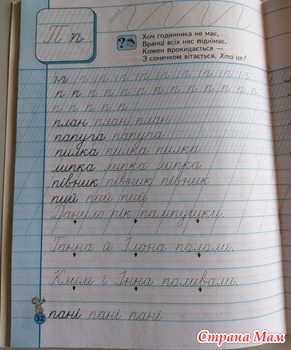 П п
Хоч годинника не має,
Вранці всіх нас піднімає.
Кожен прокидається —
З сонечком вітається. Хто це?
п п п п п п п п п п
п п п п п п п п п п п п
п п п п п п п
план план план
папуга папуга
пилка пилка пилка
липка липка липка
півник півник півник
пий пий пий
Данило пік пампушки.
Ганна й Ілона пололи.
Клим і Інна поливали.
32 пані пані пані
Страна Мам